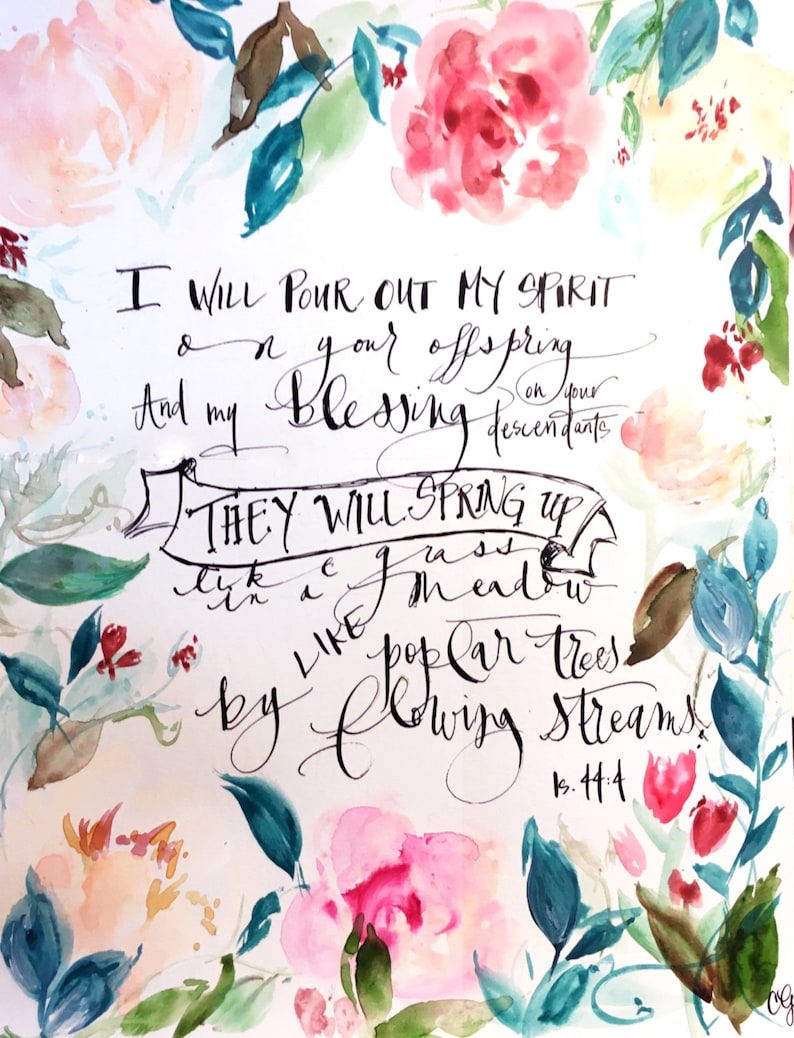 I WILL POUR OUT MY SPIRIT
on your offspring
And my Blessing on your
descendants
THEY WILL SPRING UP
like grass
in a meadow
LIKE poplar trees
by flowing streams.
Is. 44:4
CG